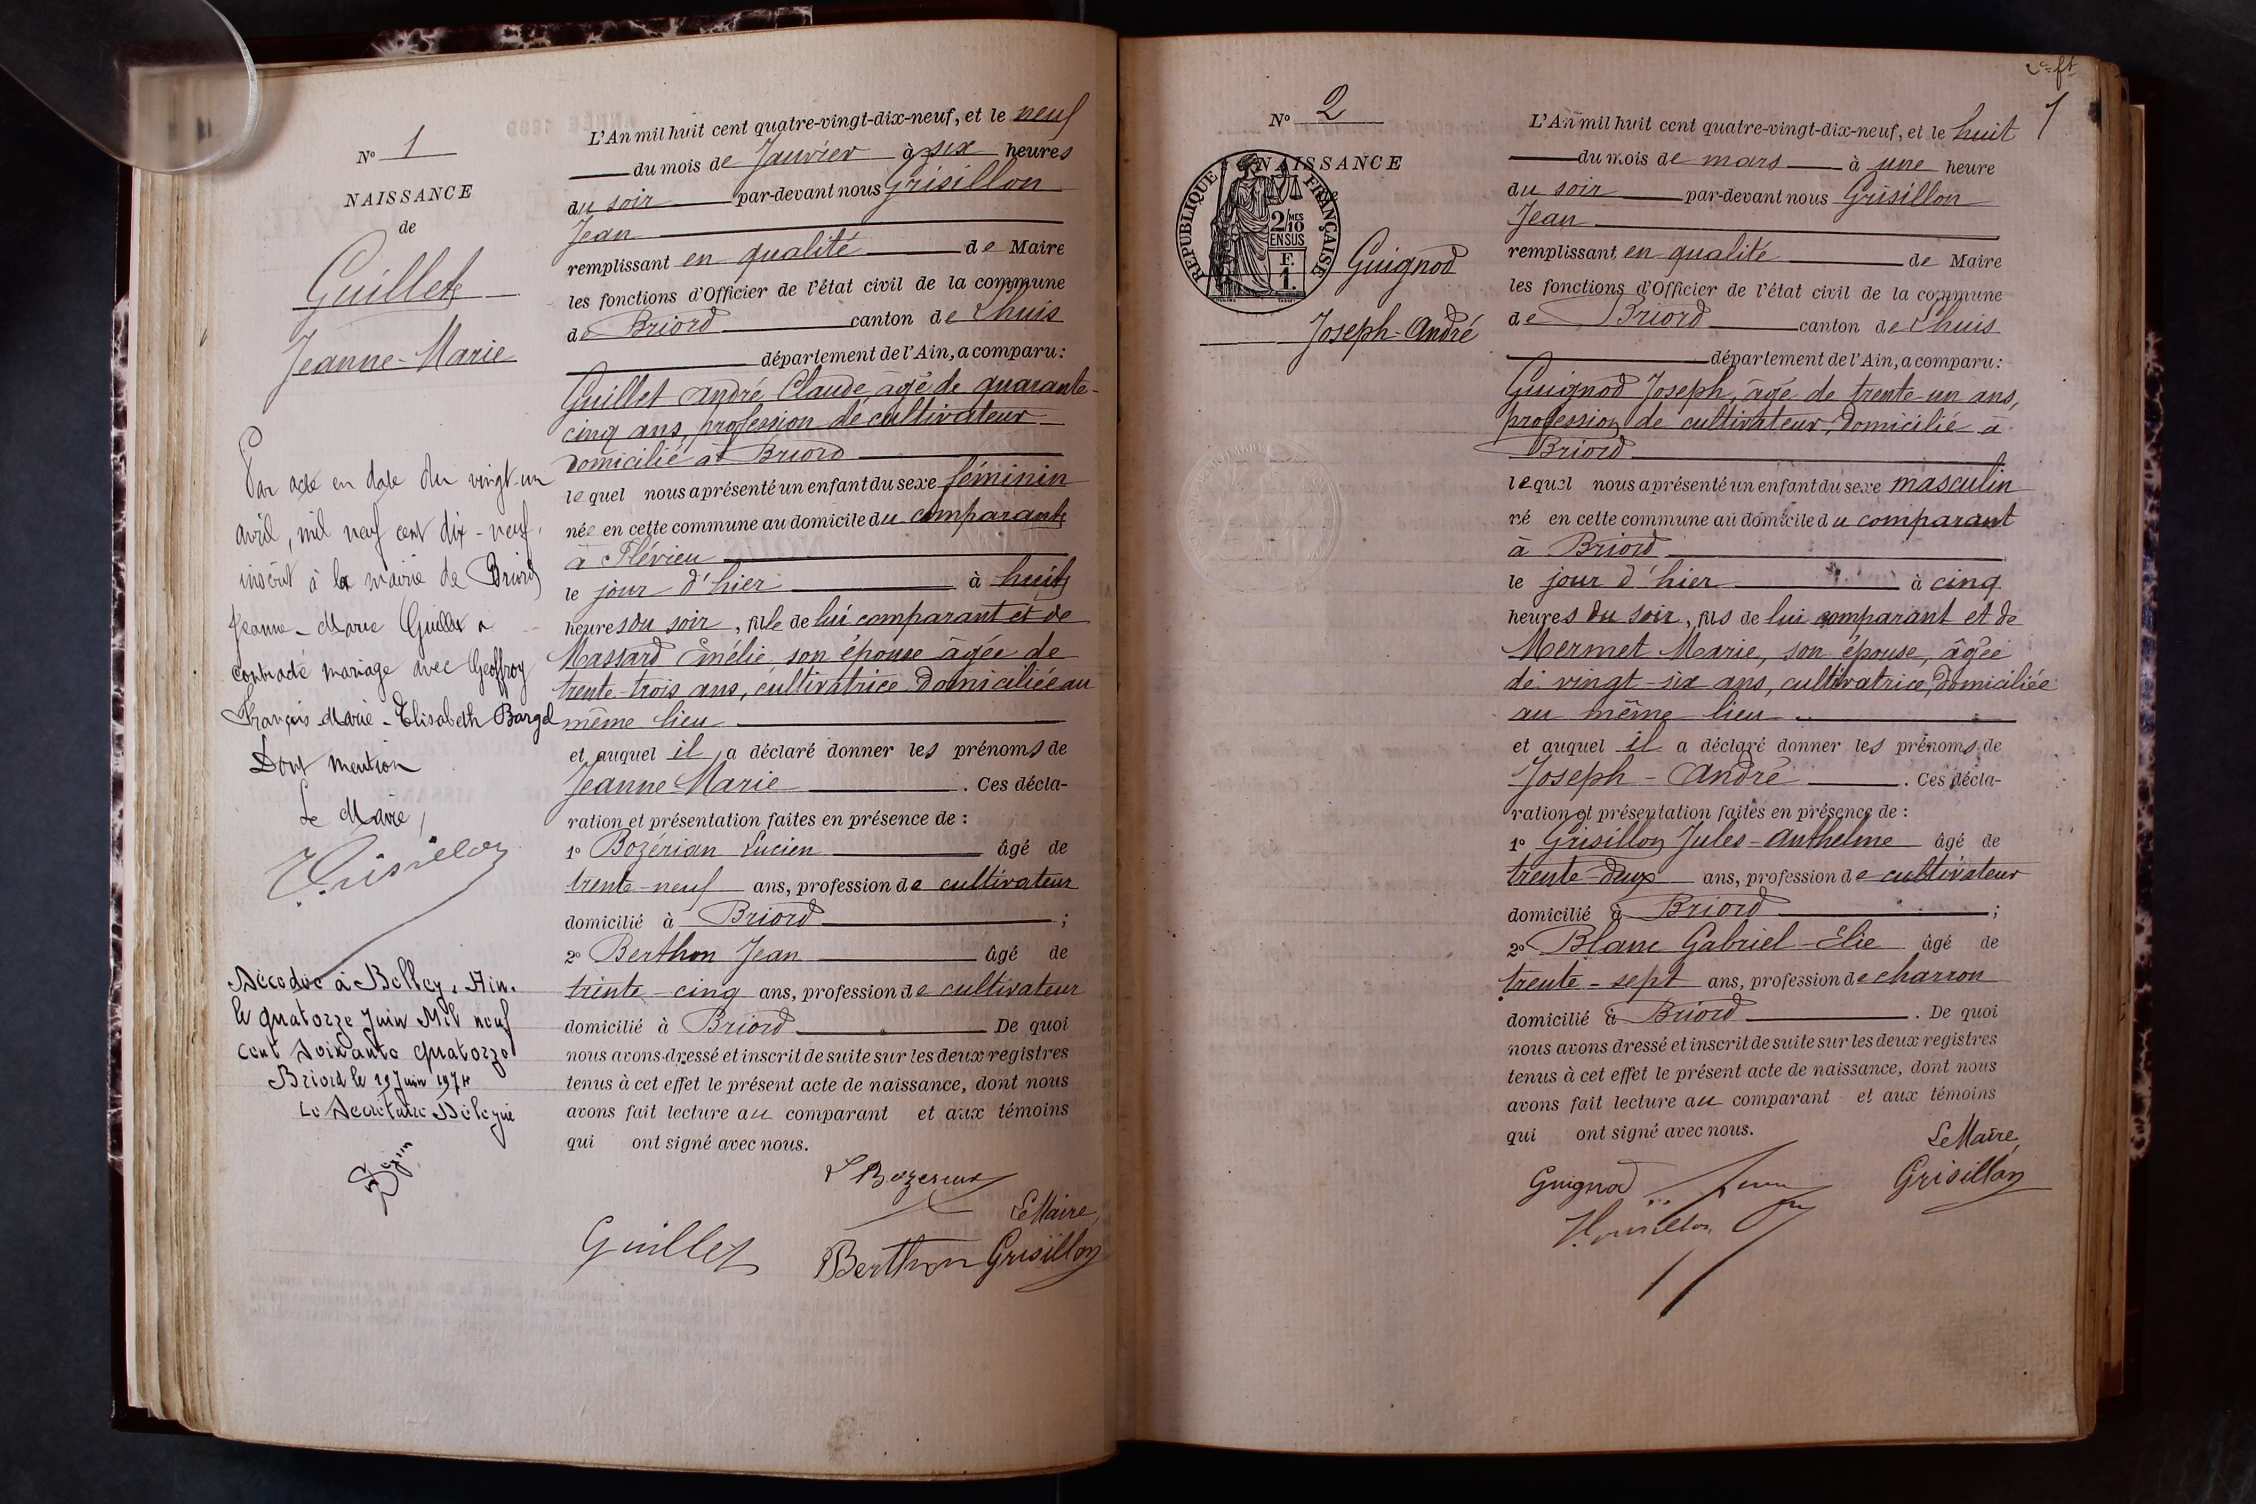 N° 1
NAISSANCE
de
Guillet
Jeanne-Marie
Par acte en date du vingt-un
avril, mil neuf cent dix-neuf,
inscrit à la mairie de Briord
Jeanne-Marie Guillet a
contracté mariage avec Geoffroy
François-Marie-Elisabeth
Dont mention
Le Maire,
Grisillon
Décédée à Belley, Ain.
le quatorze Juin Mil neuf
cent Soixante quatorze
Briord le 19 Juin 1974
Le Secrétaire Délégué
L'An mil huit cent quatre-vingt-dix-neuf, et le neuf
du mois de Janvier à six heures
du soir par-devant nous Grisillon
Jean
remplissant en qualité de Maire
les fonctions d'Officier de l'état civil de la commune
de Briord canton de Lhuis
département de l'Ain, a comparu:
Guillet André Claude âgé de quarante-
cinq ans, profession de cultivateur
domicilié à Briord
lequel nous a présenté un enfant du sexe féminin
née en cette commune au domicile du comparant
à Flévieu
le jour d'hier à huit
heures du soir, fille de lui comparant et de
Massard Emélie son épouse âgée de
trente-trois ans, cultivatrice domiciliée au
même lieu
et auquel il a déclaré donner les prénoms de
Jeanne Marie. Ces décla-
ration et présentation faites en présence de :
1° Bozérian Lucien âgé de
trente-neuf ans, profession de cultivateur
domicilié à Briord ;
2° Berthon Jean âgé de
trente-cinq ans, profession de cultivateur
domicilié à Briord De quoi
nous avons dressé et inscrit de suite sur les deux registres
tenus à cet effet le présent acte de naissance, dont nous
avons fait lecture au comparant et aux témoins
qui ont signé avec nous.
L Bozerian
Le Maire,
Guillet Berthon Grisillon
2e ft
1
N° 2
NAISSANCE
REPUBLIQUE FRANÇAISE
2/10 MES
EN SUS
F.
1.
Guignod
Joseph-André
L'An mil huit cent quatre-vingt-dix-neuf, et le huit
du mois de mars à une heure
du soir par-devant nous Grisillon
Jean
remplissant en qualité de Maire
les fonctions d'Officier de l'état civil de la commune
de Briord canton de Lhuis
département de l'Ain, a comparu:
Guignod Joseph, âgé de trente-un ans,
profession de cultivateur, domicilié à
Briord
lequel nous a présenté un enfant du sexe masculin
né en cette commune au domicile du comparant
à Briord
le jour d'hier à cinq
heures du soir, fils de lui comparant et de
Mermet Marie, son épouse, âgée
de vingt-six ans, cultivatrice, domiciliée
au même lieu
et auquel il a déclaré donner les prénoms de
Joseph-André. Ces décla-
ration et présentation faites en présence de :
1° Grisillon Jules-Anthelme âgé de
trente-deux ans, profession de cultivateur
domicilié à Briord ;
2° Blanc Gabriel-Elie âgé de
trente-sept ans, profession de charron
domicilié à Briord. De quoi
nous avons dressé et inscrit de suite sur les deux registres
tenus à cet effet le présent acte de naissance, dont nous
avons fait lecture au comparant et aux témoins
qui ont signé avec nous.
Le Maire,
Guignod Grisillon